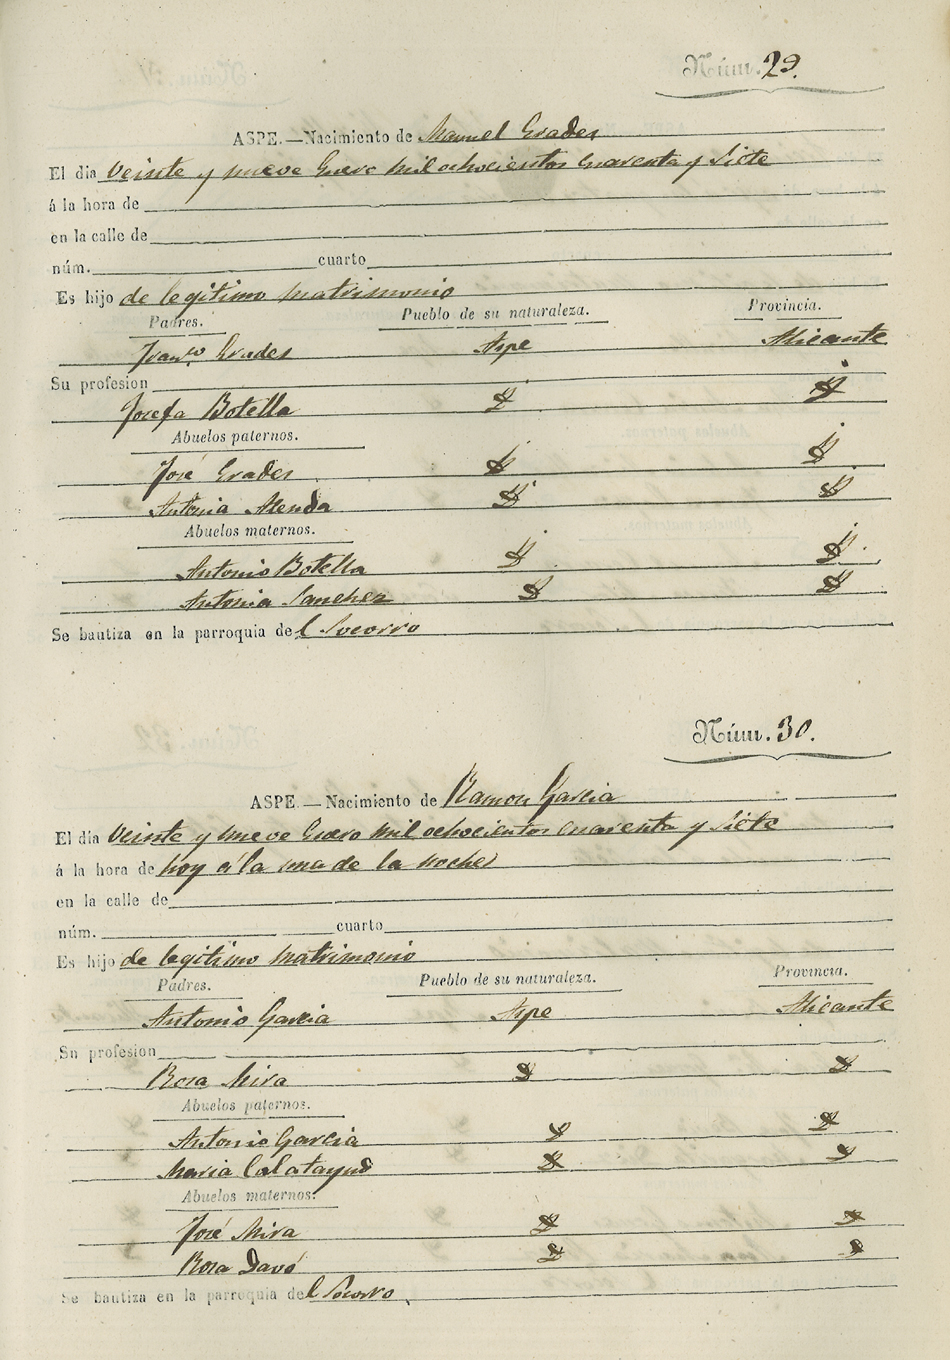 Núm. 29.
ASPE.—Nacimiento de Manuel Grades
El dia Veinte y nueve Enero Mil ochocientos Cuarenta y Siete
á la hora de
en la calle de
núm. cuarto
Es hijo de legitimo matrimonio
Padres. Pueblo de su naturaleza. Provincia.
Franco. Grades Aspe Alicante
Su profesion
Josefa Botella
Abuelos paternos.
José Grades
Antonia Alenda
Abuelos maternos.
Antonio Botella
Antonia Sanchez
Se bautiza en la parroquia del Socorro
Núm. 30.
ASPE.—Nacimiento de Ramon Garcia
El dia Veinte y nueve Enero Mil ochocientos cuarenta y Siete
á la hora de hoy á la una de la noche
en la calle de
núm. cuarto
Es hijo de legitimo matrimonio
Padres. Pueblo de su naturaleza. Provincia.
Antonio Garcia Aspe Alicante
Su profesion
Rosa Mira
Abuelos paternos.
Antonio Garcia
Maria Calatayud
Abuelos maternos.
José Mira
Rosa Davó
Se bautiza en la parroquia del Socorro